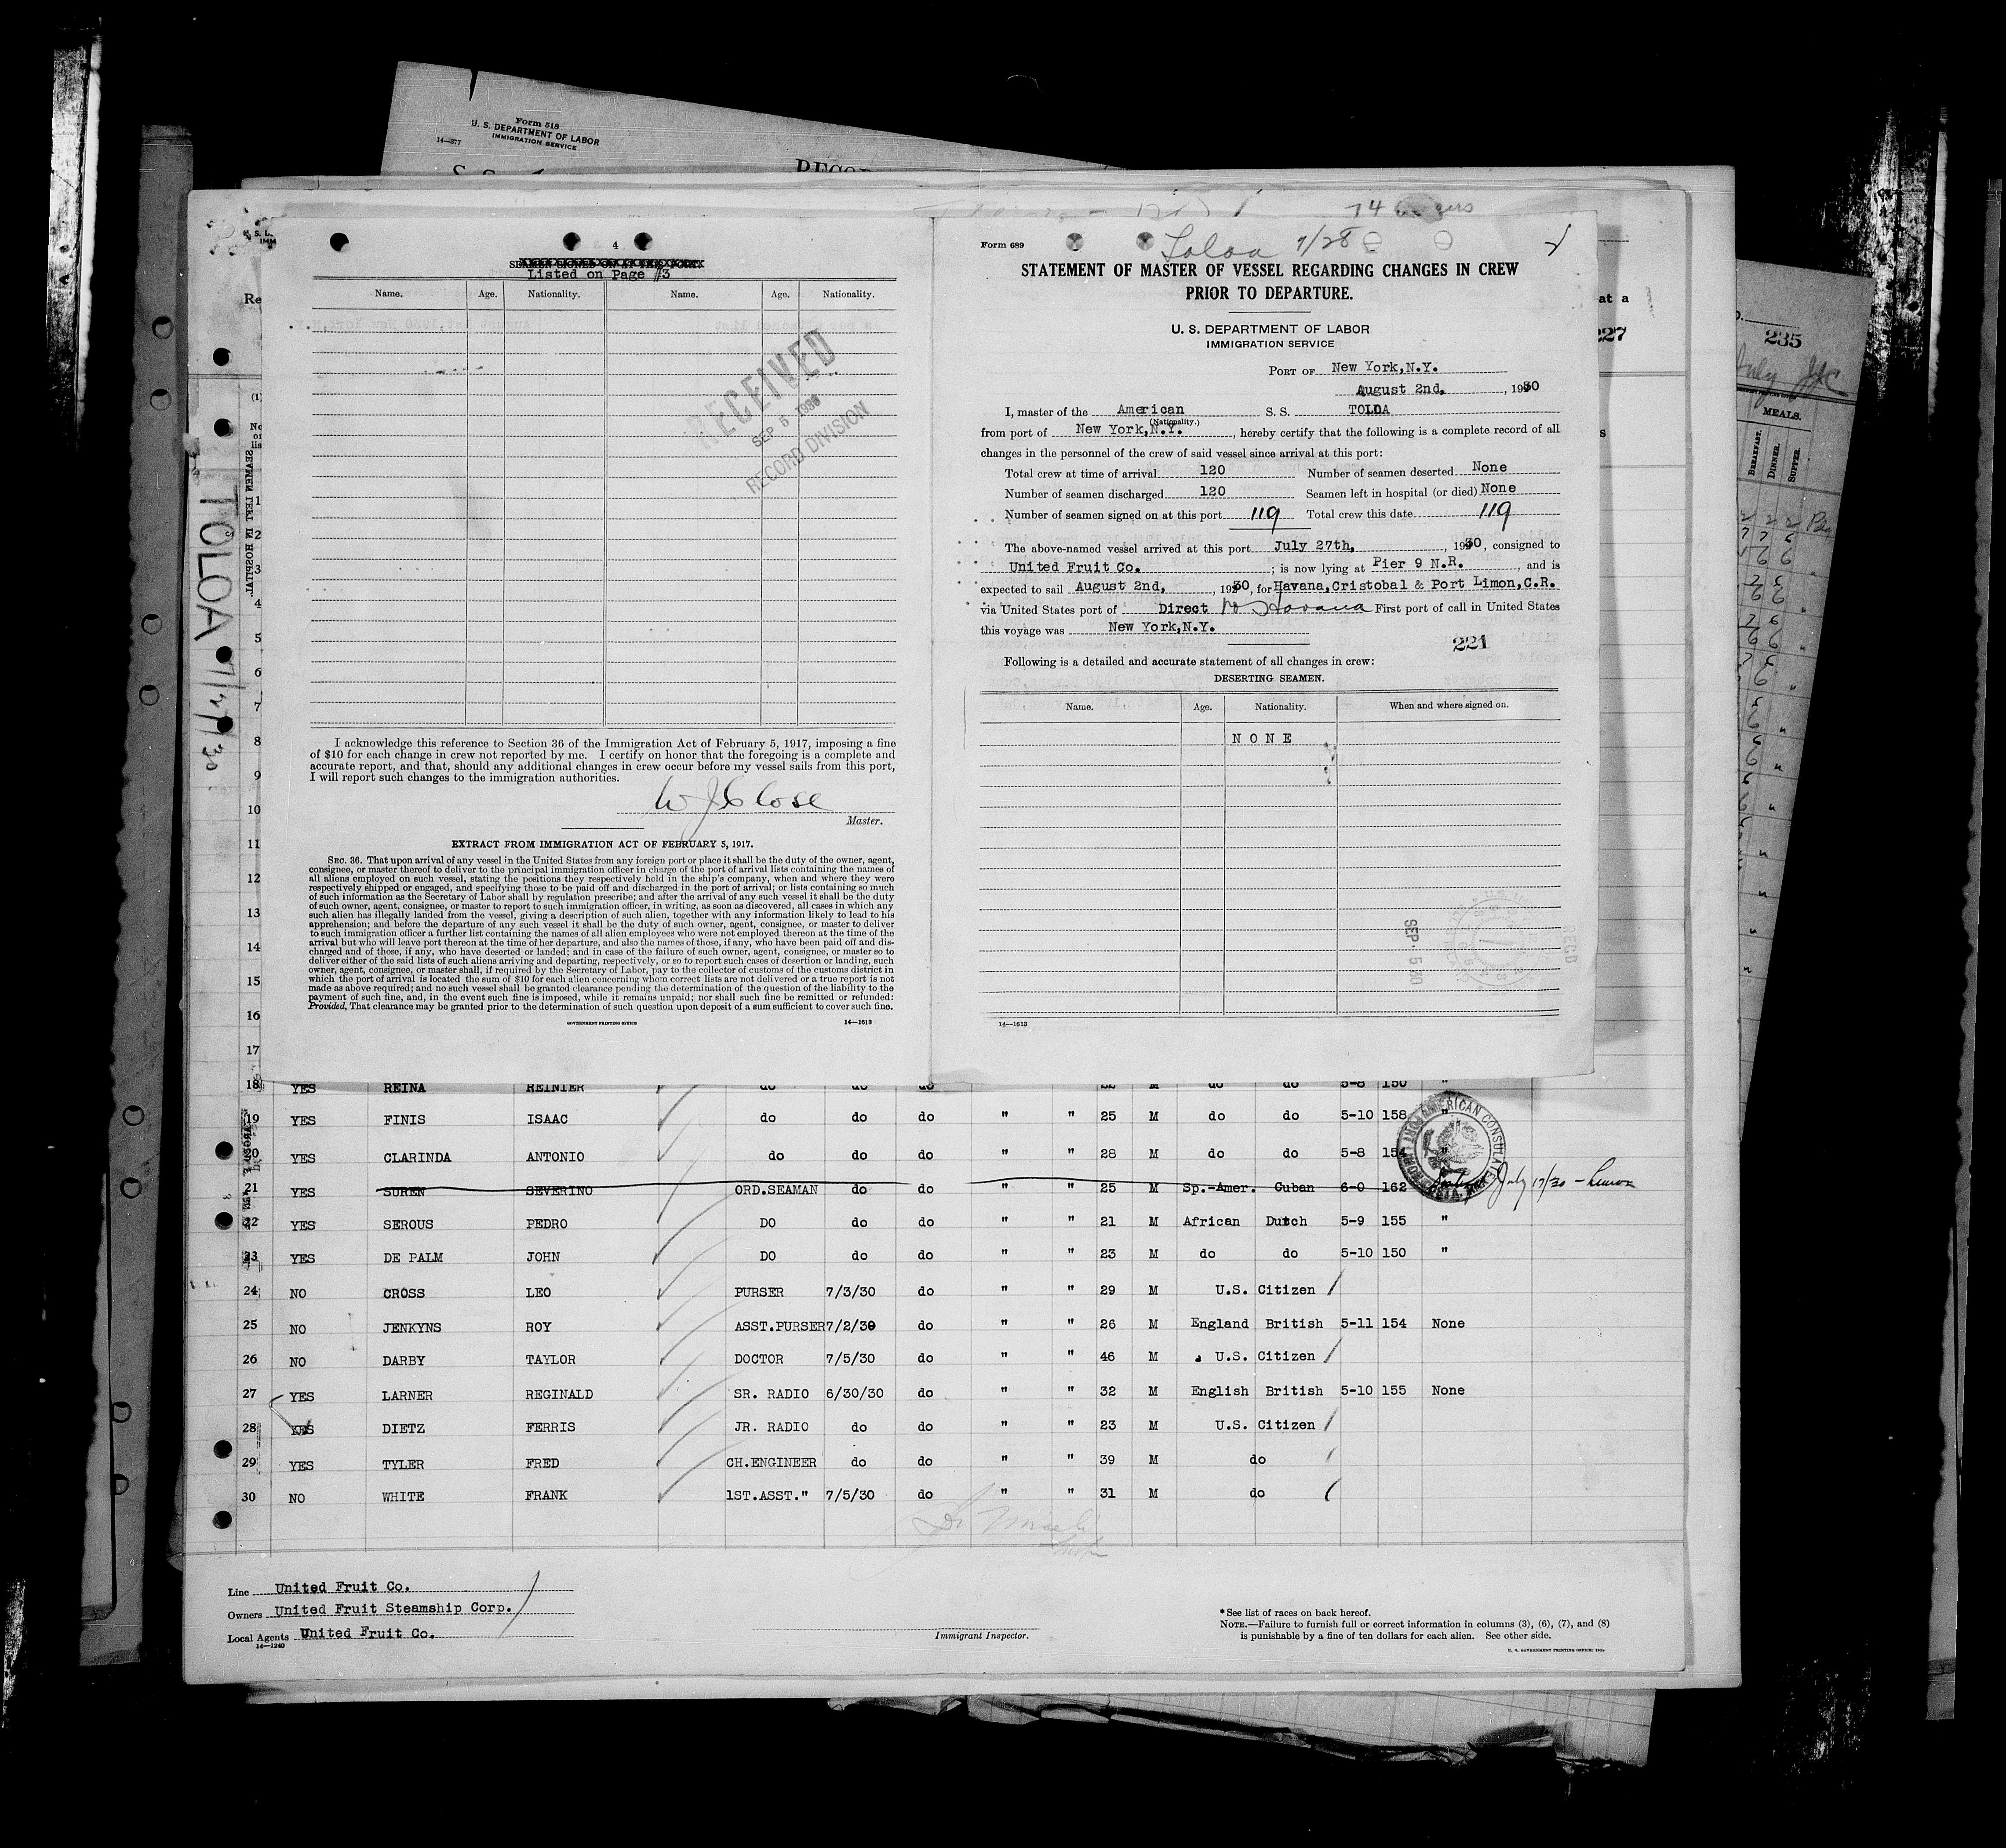 Form 518
U. S. DEPARTMENT OF LABOR
IMMIGRATION SERVICE
14—377
4
SEAMEN SIGNED ON AT THIS PORT.
Listed on Page #3
Name. Age. Nationality. Name. Age. Nationality.
RECEIVED
SEP 6 1930
RECORD DIVISION
I acknowledge this reference to Section 36 of the Immigration Act of February 5, 1917, imposing a fine
of $10 for each change in crew not reported by me. I certify on honor that the foregoing is a complete and
accurate report, and that, should any additional changes in crew occur before my vessel sails from this port,
I will report such changes to the immigration authorities.
W J Close
Master.
EXTRACT FROM IMMIGRATION ACT OF FEBRUARY 5, 1917.
SEC. 36. That upon arrival of any vessel in the United States from any foreign port or place it shall be the duty of the owner, agent,
consignee, or master thereof to deliver to the principal immigration officer in charge of the port of arrival lists containing the names of
all aliens employed on such vessel, stating the positions they respectively hold in the ship's company, when and where they were
respectively shipped or engaged, and specifying those to be paid off and discharged in the port of arrival; or lists containing so much
of such information as the Secretary of Labor shall by regulation prescribe; and after the arrival of any such vessel it shall be the duty
of such owner, agent, consignee, or master to report to such immigration officer, in writing, as soon as discovered, all cases in which any
such alien has illegally landed from the vessel, giving a description of such alien, together with any information likely to lead to his
apprehension; and before the departure of any such vessel it shall be the duty of such owner, agent, consignee, or master to deliver
to such immigration officer a further list containing the names of all alien employees who were not employed thereon at the time of the
arrival but who will leave port thereon at the time of her departure, and also the names of those, if any, who have been paid off and dis-
charged and of those, if any, who have deserted or landed; and in case of the failure of such owner, agent, consignee, or master so to
deliver either of the said lists of such aliens arriving and departing, respectively, or so to report such cases of desertion or landing, such
owner, agent, consignee, or master shall, if required by the Secretary of Labor, pay to the collector of customs of the customs district in
which the port of arrival is located the sum of $10 for each alien concerning whom correct lists are not delivered or a true report is not
made as above required; and no such vessel shall be granted clearance pending the determination of the question of the liability to the
payment of such fine, and, in the event such fine is imposed, while it remains unpaid; nor shall such fine be remitted or refunded:
Provided, That clearance may be granted prior to the determination of such question upon deposit of a sum sufficient to cover such fine.
GOVERNMENT PRINTING OFFICE 14—1613
Form 689
Toloa 7/28
STATEMENT OF MASTER OF VESSEL REGARDING CHANGES IN CREW
PRIOR TO DEPARTURE.
U. S. DEPARTMENT OF LABOR
IMMIGRATION SERVICE
PORT OF New York,N.Y.
August 2nd, , 1930
I, master of the American S. S. TOLOA
(Nationality.)
from port of New York,N.Y. , hereby certify that the following is a complete record of all
changes in the personnel of the crew of said vessel since arrival at this port:
Total crew at time of arrival 120 Number of seamen deserted None
Number of seamen discharged 120 Seamen left in hospital (or died) None
Number of seamen signed on at this port 119 Total crew this date 119
The above-named vessel arrived at this port July 27th, , 1930, consigned to
United Fruit Co. ; is now lying at Pier 9 N.R. , and is
expected to sail August 2nd, , 1930, for Havana,Cristobal & Port Limon,C.R.
via United States port of Direct to Havana First port of call in United States
this voyage was New York,N.Y.
221
Following is a detailed and accurate statement of all changes in crew:
DESERTING SEAMEN.
Name. Age. Nationality. When and where signed on.
NONE
SEP. 5 30
REC'D
14—1613
at a
227
235
July
MEALS.
BREAKFAST. DINNER. SUPPER.
TOLOA
SEAMEN LEFT IN HOSPITAL
18 YES REINA REINIER do do do 22 M do do 5-8 150 "
19 YES FINIS ISAAC do do do " " 25 M do do 5-10 158 "
20 YES CLARINDA ANTONIO do do do " " 28 M do do 5-8 154 "
21 YES SUREN SEVERINO ORD.SEAMAN do do " " 25 M Sp.-Amer. Cuban 6-0 162 July 17/30 - Limon
22 YES SEROUS PEDRO DO do do " " 21 M African Dutch 5-9 155 "
23 YES DE PALM JOHN DO do do " " 23 M do do 5-10 150 "
24 NO CROSS LEO PURSER 7/3/30 do " " 29 M U.S. Citizen
25 NO JENKYNS ROY ASST.PURSER 7/2/30 do " " 26 M England British 5-11 154 None
26 NO DARBY TAYLOR DOCTOR 7/5/30 do " " 46 M U.S. Citizen
27 YES LARNER REGINALD SR. RADIO 6/30/30 do " " 32 M English British 5-10 155 None
28 YES DIETZ FERRIS JR. RADIO do do " " 23 M U.S. Citizen
29 YES TYLER FRED CH.ENGINEER do do " " 39 M do
30 NO WHITE FRANK 1ST.ASST." 7/5/30 do " " 31 M do
AMERICAN CONSULATE
Line United Fruit Co.
Owners United Fruit Steamship Corp.
Local Agents United Fruit Co.
14—1240
Immigrant Inspector.
*See list of races on back hereof.
NOTE.—Failure to furnish full or correct information in columns (3), (6), (7), and (8)
is punishable by a fine of ten dollars for each alien. See other side.